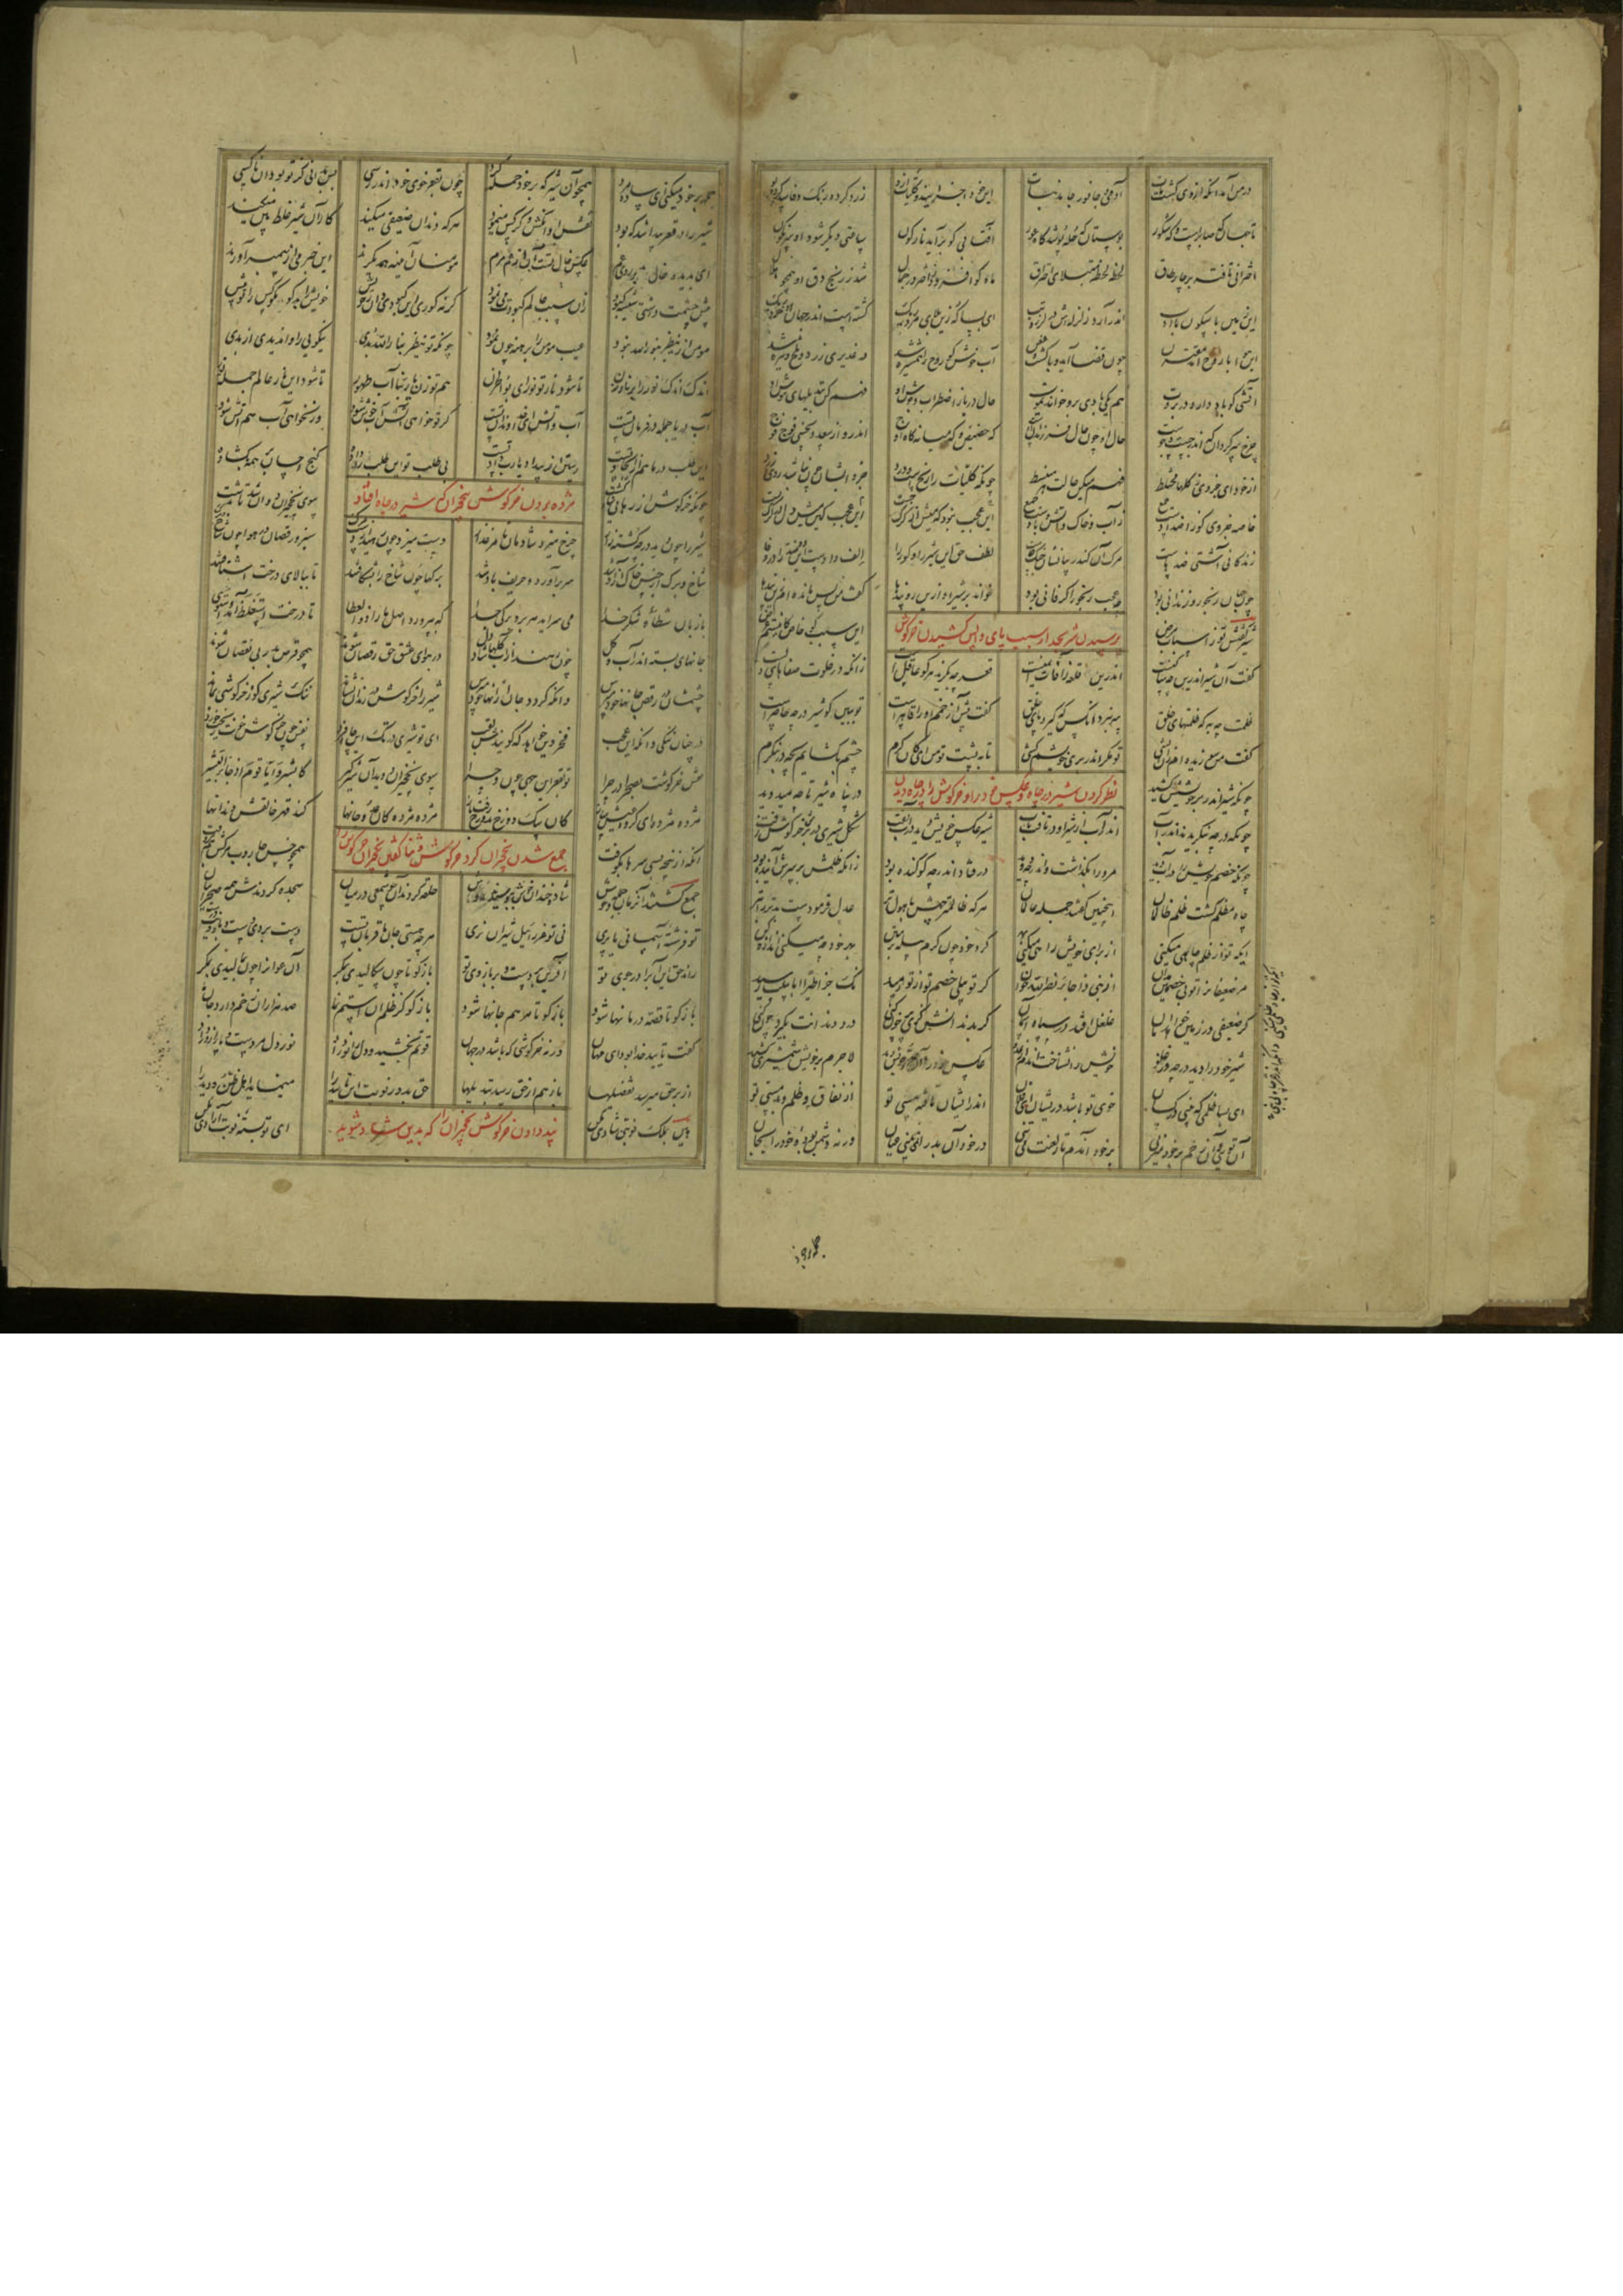 در من آمد آنکه از وی گشت مات آدمی و جانور جامد نبات این خود اجزایند و کلیات ازو زرد کرده رنگ و فاسد کرده بو
تا جهان گه صابرست و گه شکور بوستان گه حله پوشد گاه عور آفتابی کو برآید نارگون ساعتی دیگر شود او سرنگون
اختران تافته بر چار طاق لحظه لحظه مبتلای احتراق ماه کو افزود ز اختر در جمال شد ز رنج دق او همچو خیال
این زمین با سکون با ادب اندر آرد زلزله‌اش در لرز تب ای بسا که زین بلای مرده ریگ گشته است اندر جهان او خرده ریگ
این هوا با روح آمد مقترن چون قضا آید وبا گشت و عفن آب خوش کو روح را همشیره شد در غدیری زرد و تلخ و تیره شد
آتشی کو باد دارد در بروت هم یکی بادی برو خواند یموت حال دریا ز اضطراب و جوش او فهم کن تبدیلهای هوش او
چرخ سرگردان که اندر جست و جوست حال او چون حال فرزندان اوست گه حضیض و گه میانه گاه اوج اندرو از سعد و نحسی فوج فوج
از خود ای جزوی ز کلها مختلط فهم میکن حالت هر منبسط چونکه کلیات را رنجست و درد جزو ایشان چون نباشد روی زرد
خاصه جزوی کو ز اضدادست جمع ز آب و خاک و آتش و بادست جمع این عجب نبود که میش از گرگ جست این عجب کین میش دل در گرگ بست
زندگانی آشتی ضدهاست مرگ آن کاندر میانشان جنگ خاست لطف حق این شیر را و گور را الف دادست این دو ضد دور را
چون جهان رنجور و زندانی بود چه عجب رنجور اگر فانی بود خواند بر شیر او ازین رو پندها گفت من پس مانده‌ام زین بندها
پرسیدن شیر نخجیر از سبب پای واپس کشیدن خرگوش
شیر گفتش تو ز اسباب مرض این سبب گو خاص کاینستم غرض
گفت آن شیر اندرین چه ساکنست اندرین قلعه ز آفات ایمنست قعر چه بگزید هر کو عاقلست زانکه در خلوت صفاهای دلست
ظلمت چه به که ظلمتهای خلق سر نبرد آنکس که گیرد پای خلق گفت پیش آ زخمم او را قاهرست تو ببین کو شیر در چه حاضرست
گفت من سوزیده‌ام زان آتشی تو مگر اندر بر خویشم کشی تا به پشت تو من ای کان کرم چشم بگشایم بچه در بنگرم
نظر کردن شیر در چاه و عکس خود را و خرگوش را در چاه دیدن
چونکه شیر اندر بر خویشش کشید در پناه شیر تا چه میدوید
چونکه در چه بنگریدند اندر آب اندر آب از شیر و او در تافت تاب شیر عکس خویش دید در آب تفت شکل شیری در برش خرگوش زفت
چونکه خصم خویش را در آب دید مر ورا بگذاشت و اندر چه دوید در فتاد اندر چه کو کنده بود زانکه ظلمش بر سرش آینده بود
چاه مظلم گشت ظلم ظالمان اینچنین گفتند جمله عالمان هر که ظالمتر چهش با هول تر عدل فرمودست بدتر را بتر
ایکه تو از ظلم چاهی میکنی از برای خویش دامی میکنی گرد خود چون کرم پیله بر متن بهر خود چه میکنی اندازه کن
مر ضعیفان را تو بی خصمی مدان از نبی ذا جاء نصر الله خوان گر تو پیلی خصم تو از تو رمید نک جزا طیرا ابابیلت رسید
گر ضعیفی در زمین خواهد امان غلغل افتد در سپاه آسمان گر بدندانش گزی پر خون کنی درد دندانت بگیرد چون کنی
شیر خود را دید در چه وز غلو خویش را نشناخت آندم از عدو عکس خود را او عدو خویش دید لاجرم بر خویش شمشیری کشید
ای بسا ظلمی که بینی در کسان خوی تو باشد در ایشان ای فلان اندر ایشان تافته هستی تو از نفاق و ظلم و بد مستی تو
آن توئی و آن زخم بر خود میزنی بر خود آندم تار لعنت میتنی در خود آن بد را نمی‌بینی عیان ور نه دشمن بوده خود را بجان
حمله بر خود میکنی ای ساده مرد همچو آن شیری که بر خود حمله کرد چون بقعر خوی خود اندر رسی پس بدانی کز تو بود آن ناکسی
شیر را در قعر پیدا شد که بود نقش او آنکش دگر کس مینمود هر که دندان ضعیفی میکند کار آن شیر غلط بین میکند
ای بدیده خال بد بر روی عم عکس خال تست آن از عم مرم مؤمنان آیینه همدیگرند این خبر می از پیمبر آورند
پیش چشمت داشتی شیشه کبود زان سبب عالم کبودت می‌نمود گر نه کوری این کبودی دان ز خویش خویش را بد گو مگو کس را تو بیش
مؤمن ار ینظر بنور الله نبود عیب مؤمن را برهنه چون نمود چونکه تو ینظر بنار الله بدی نیکوئی را واندیدی از بدی
اندک اندک نور را بر نار زن تا شود نار تو نور ای بو الحزن هم تو زن یا ربنا آب طهور تا شود این نار عالم جمله نور
آب دریا جمله در فرمان تست آب و آتش ای خداوند آن تست گر تو خواهی آتش آب خوش شود ور نخواهی آب هم آتش شود
این طلب در ما هم از ایجاد تست رستن از بیداد یا رب داد تست بی طلب تو این طلب‌مان داده گنج احسان بر همه بگشاده
مژده بردن خرگوش نخجیران که شیر در چاه افتاد
چونکه خرگوش از رهائی شاد گشت سوی نخجیران دوان شد تا بدشت
شیر را چون دید در چه کشته زار چرخ میزد شادمان تا مرغزار دست میزد چون رهید از دست مرگ سبز و رقصان در هوا چون شاخ و برگ
شاخ و برگ از حبس خاک آزاد شد سر برآورد و حریف باد شد برگها چون شاخ را بشکافتند تا ببالای درخت اشتافتند
با زبان شطأه شکر خدا می‌سراید هر بر و برگی جدا که بپرورد اصل ما را ذو العطا تا درخت استغلظ آمد و استوی
جانهای بسته اندر آب و گل چون رهند از آب و گلها شاد دل در هوای عشق حق رقصان شوند همچو قرص بدر بی نقصان شوند
جسمشان در رقص و جانها خود مپرس و آنکه گردد جان از آنها خود مپرس شیر را خرگوش در زندان نشاند ننگ شیری کو ز خرگوشی بماند
در چنان ننگی و آنگه این عجب فخر دین خواهد که گویندش لقب ای تو شیری در تک این چاه فرد نفس چون خرگوش خونت ریخت و خورد
نفس خرگوشت بصحرا در چرا تو بقعر این چه چون و چرا سوی نخجیران دوید آن شیرگیر کابشروا یا قوم اذ جاء البشیر
مژده مژده ای گروه عیش ساز کان سگ دوزخ بدوزخ رفت باز مژده مژده کان عدو جانها کند قهر خالقش دندانها
آنکه از پنجه بسی سرها بکوفت همچو خس جاروب مرگش هم بروفت
جمع شدن نخجیران گرد خرگوش و ثنا گفتن نخجیران خرگوش را
جمع گشتند آنزمان جمله وحوش شاد و خندان از طرب در ذوق و جوش حلقه کردند او چو شمعی در میان سجده کردندش همه صحرائیان
تو فرشته آسمانی یا پری نی تو عزرائیل شیران نری هر چه هستی جان ما قربان تست دست بردی دست و بازویت درست
راند حق این آب را در جوی تو آفرین بر دست و بر بازوی تو باز گو تا چون سگالیدی بمکر آن عوان را چون بمالیدی بمکر
باز گو تا قصه درمانها شود باز گو تا مرهم جانها شود باز گو کز ظلم آن استم نما صد هزاران زخم دارد جان ما
گفت تایید خدا بود ای مهان ور نه خرگوشی که باشد در جهان قوتم بخشید و دل را نور داد نور دل مر دست و پا را زور داد
از بر حق میرسد تفضیلها باز هم از حق رسد تبدیلها حق بدور نوبت این تأیید را مینماید اهل ظن و دید را
پند دادن خرگوش نخجیران را که بدین شاد مشوید
هین بملک نوبتی شادی مکن ای تو بسته نوبت آزادی مکن